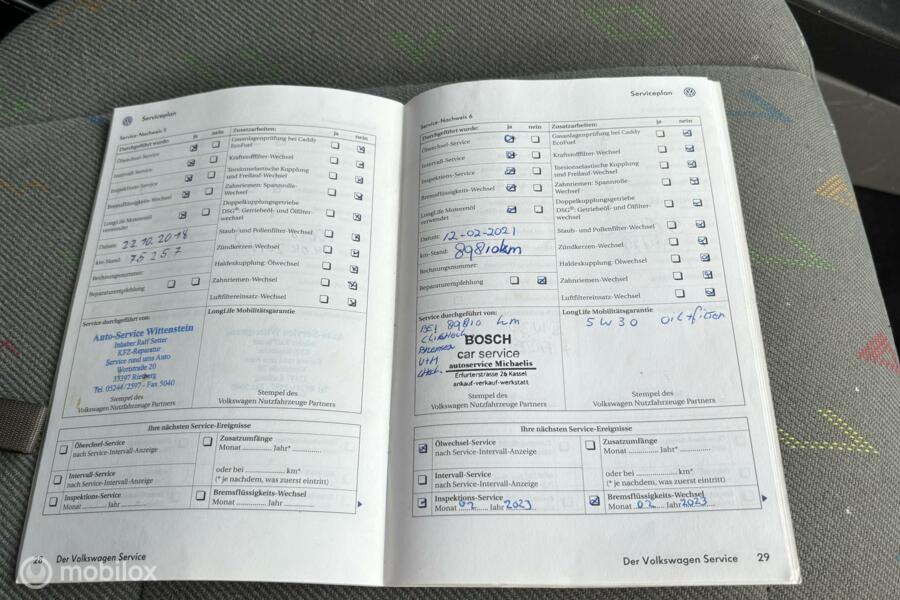 Serviceplan
Service-Nachweis 5
Durchgeführt wurde: ja nein
Ölwechsel-Service
Intervall-Service
Inspektions-Service
Bremsflüssigkeits-Wechsel
LongLife Motorenöl
verwendet
Datum: 22.10.2018
km-Stand: 75257
Rechnungsnummer:
Reparaturempfehlung
Zusatzarbeiten: ja nein
Gasanlagenprüfung bei Caddy
EcoFuel
Kraftstofffilter-Wechsel
Torsionselastische Kupplung
und Freilauf-Wechsel
Zahnriemen- Spannrolle-
Wechsel
Doppelkupplungsgetriebe
DSG®: Getriebeöl- und Ölfilter-
wechsel
Staub- und Pollenfilter-Wechsel
Zündkerzen-Wechsel
Haldexkupplung: Ölwechsel
Zahnriemen-Wechsel
Luftfiltereinsatz-Wechsel
Service durchgeführt von:
Auto-Service Wittenstein
Inhaber Ralf Setter
KFZ-Reparatur
Service rund ums Auto
33397 Rietberg
Tel. 05244/2597 - Fax 5040
Stempel des
Volkswagen Nutzfahrzeuge Partners
LongLife Mobilitätsgarantie
Stempel des
Volkswagen Nutzfahrzeuge Partners
Ihre nächsten Service-Ereignisse
Ölwechsel-Service
nach Service-Intervall-Anzeige
Intervall-Service
nach Service-Intervall-Anzeige
Inspektions-Service
Monat ............ Jahr ............
Zusatzumfänge
Monat ............ Jahr* ............
oder bei ............ km*
(* je nachdem, was zuerst eintritt)
Bremsflüssigkeits-Wechsel
Monat ............ Jahr ............
28 Der Volkswagen Service
Serviceplan
Service-Nachweis 6
Durchgeführt wurde: ja nein
Ölwechsel-Service
Intervall-Service
Inspektions-Service
Bremsflüssigkeits-Wechsel
LongLife Motorenöl
verwendet
Datum: 12-02-2021
km-Stand: 89810km
Rechnungsnummer:
Reparaturempfehlung
Zusatzarbeiten: ja nein
Gasanlagenprüfung bei Caddy
EcoFuel
Kraftstofffilter-Wechsel
Torsionselastische Kupplung
und Freilauf-Wechsel
Zahnriemen- Spannrolle-
Wechsel
Doppelkupplungsgetriebe
DSG®: Getriebeöl- und Ölfilter-
wechsel
Staub- und Pollenfilter-Wechsel
Zündkerzen-Wechsel
Haldexkupplung: Ölwechsel
Zahnriemen-Wechsel
Luftfiltereinsatz-Wechsel
Service durchgeführt von:
BEI 89810 km
BOSCH
car service
autoservice Michaelis
Erfurterstrasse 26 Kassel
ankauf-verkauf-werkstatt
Stempel des
Volkswagen Nutzfahrzeuge Partners
LongLife Mobilitätsgarantie
5W30 Oil+filter
Stempel des
Volkswagen Nutzfahrzeuge Partners
Ihre nächsten Service-Ereignisse
Ölwechsel-Service
nach Service-Intervall-Anzeige
Intervall-Service
nach Service-Intervall-Anzeige
Inspektions-Service
Monat 02 Jahr 2023
Zusatzumfänge
Monat ............ Jahr* ............
oder bei ............ km*
(* je nachdem, was zuerst eintritt)
Bremsflüssigkeits-Wechsel
Monat 02 Jahr 2023
Der Volkswagen Service 29
mobilox